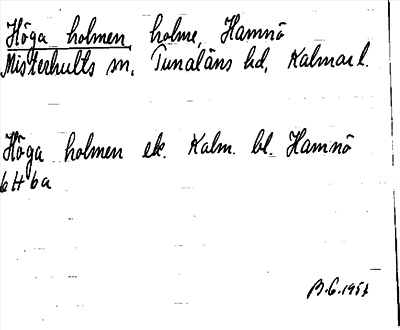 Höga holmen, holme, Hamnö
Misterhults sn, Tunaläns hd, Kalmar l.
Höga holmen ek. Kalm. bl. Hamnö
6H 6a
B.G. 1951